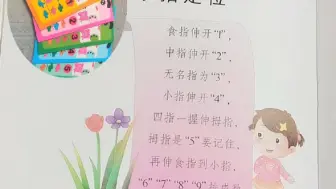 指定位
食指伸开“1”，
中指伸开“2”，
无名指为“3”，
小指伸开“4”，
四指一握伸拇指，
拇指是“5”要记住，
再伸食指到小指，
“6”“7”“8”“9”